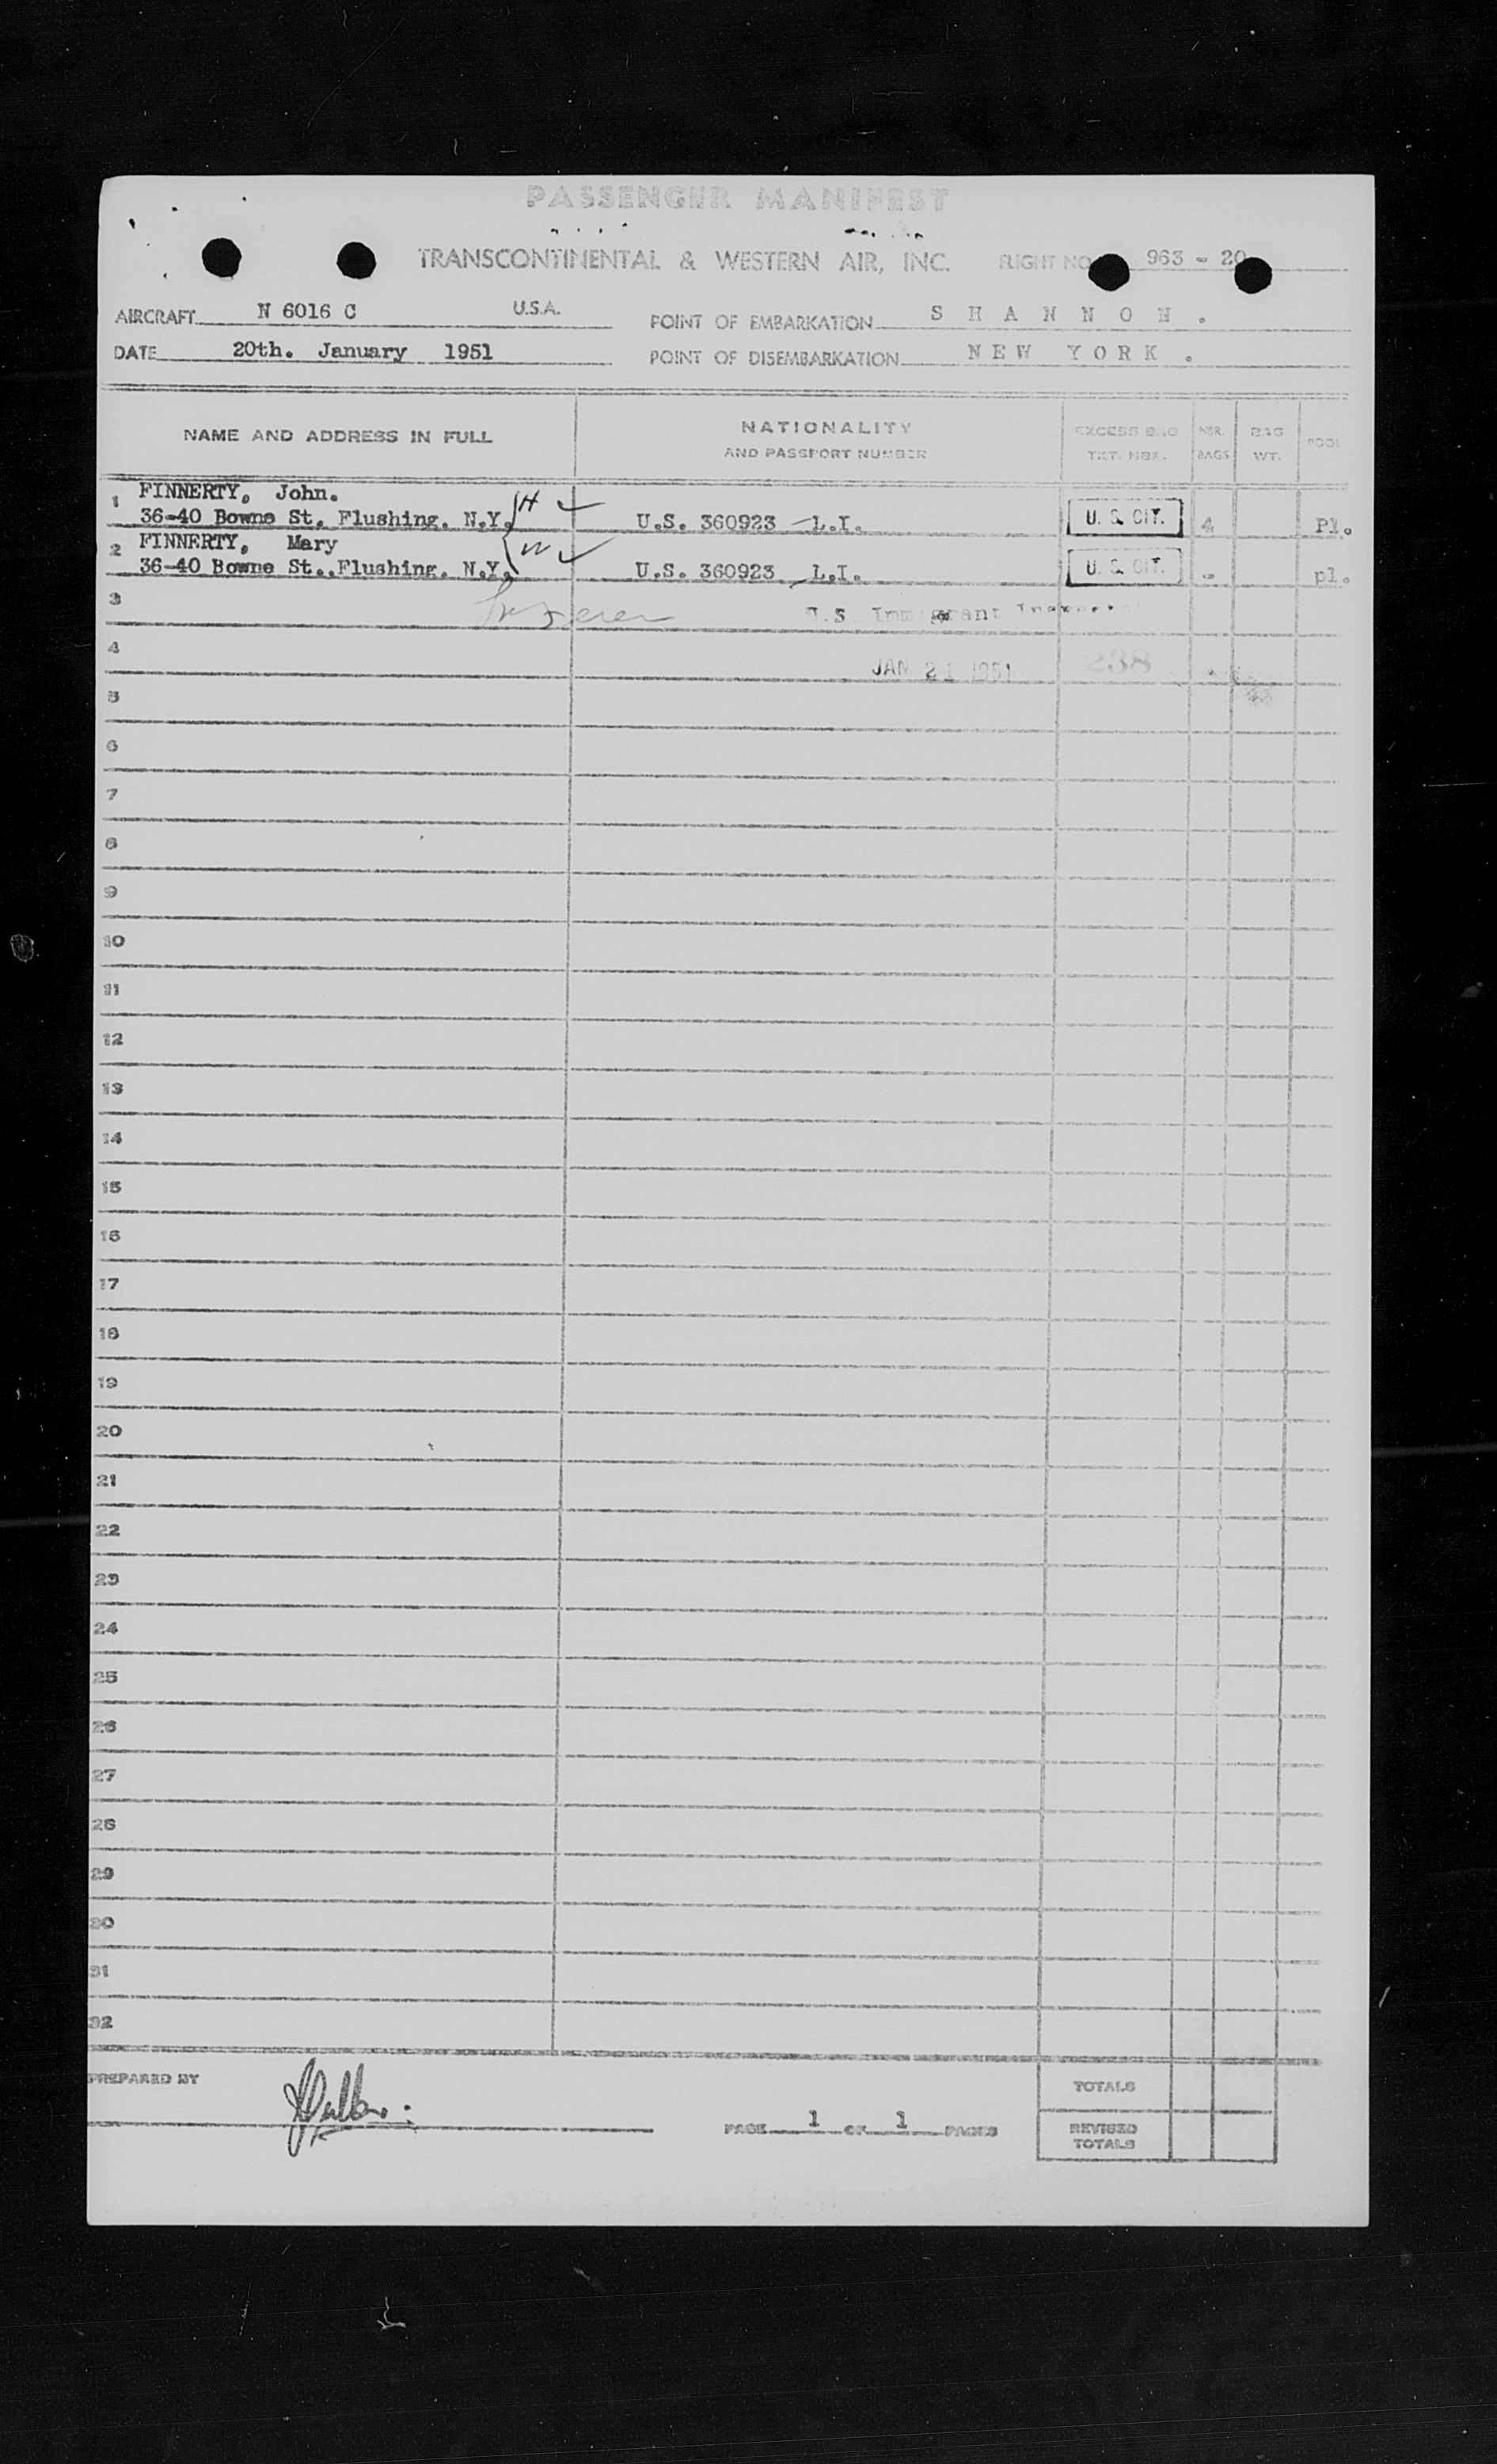 PASSENGER MANIFEST
TRANSCONTINENTAL & WESTERN AIR, INC. FLIGHT NO. 963 - 20
AIRCRAFT N 6016 C U.S.A. POINT OF EMBARKATION S H A N N O N .
DATE 20th. January 1951 POINT OF DISEMBARKATION N E W Y O R K .
NAME AND ADDRESS IN FULL NATIONALITY AND PASSPORT NUMBER EXCESS BAG TKT. NBR. NBR. BAGS BAG WT. POOL
1 FINNERTY, John.
36-40 Bowne St, Flushing. N.Y. H U.S. 360923 - L.I. U. S. CIT. 4 Pl.
2 FINNERTY, Mary
36-40 Bowne St., Flushing. N.Y. W U.S. 360923 L.I. U. S. CIT. - pl.
3 U.S. Immigrant Inspector
4 JAN 21 1951 238
5
6
7
8
9
10
11
12
13
14
15
16
17
18
19
20
21
22
23
24
25
26
27
28
29
30
31
32
PREPARED BY TOTALS
PAGE 1 OF 1 PAGES REVISED TOTALS